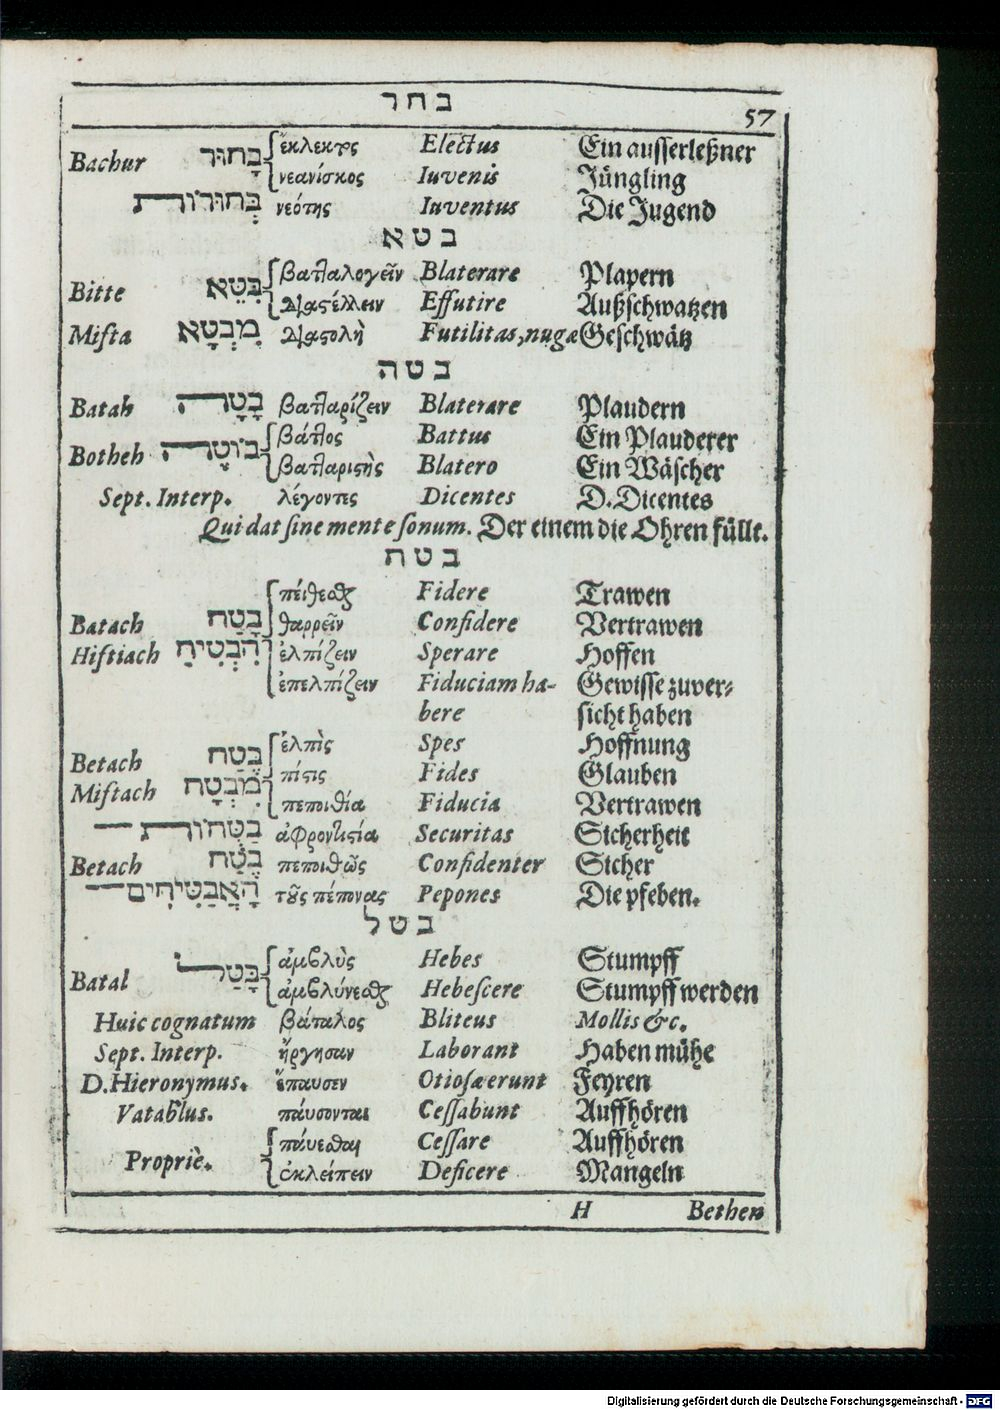 בחר
57
Bachur בָּחוּר ἔκλεκτος Electus Ein ausserleßner
νεανίσκος Iuvenis Jüngling
בְּחוּרוֹת νεότης Iuventus Die Jugend
בטא
Bitte בִּטֵּא βατταλογεῖν Blaterare Plapern
διαστέλλειν Effutire Außschwatzen
Mifta מִבְטָא διαστολὴ Futilitas, nugæ Geschwätz
בטה
Batah בָּטָה βατταρίζειν Blaterare Plaudern
Botheh בּוֹטֶה βάττος Battus Ein Plauderer
βατταριστὴς Blatero Ein Wäscher
Sept. Interp. λέγοντες Dicentes D. Dicentes
Qui dat sine mente sonum. Der einem die Ohren füllt.
בטח
Batach בָּטַח πείθεσθαι Fidere Trawen
θαρρεῖν Confidere Vertrawen
Hiftiach הִבְטִיחַ ἐλπίζειν Sperare Hoffen
ἐπελπίζειν Fiduciam ha- Gewisse zuver-
bere sicht haben
Betach בֶּטַח ἐλπὶς Spes Hoffnung
Miftach מִבְטָח πίστις Fides Glauben
πεποιθία Fiducia Vertrawen
בַּטֻּחוֹת — ἀφροντιστία Securitas Sicherheit
Betach בֶּטַח πεποιθῶς Confidenter Sicher
הָאֲבַטִּיחִים — τοὺς πέπονας Pepones Die pfeben.
בטל
Batal בָּטַל ἀμβλὺς Hebes Stumpff
ἀμβλύνεσθαι Hebescere Stumpff werden
Huic cognatum βάταλος Bliteus Mollis &c.
Sept. Interp. ἤργησαν Laborant Haben mühe
D. Hieronymus. ἔπαυσεν Otiosæ erunt Feyren
Vatablus. παύσονται Cessabunt Auffhören
Propriè. παύεσθαι Cessare Auffhören
ἐκλείπειν Deficere Mangeln
H Bethen
Digitalisierung gefördert durch die Deutsche Forschungsgemeinschaft - DFG